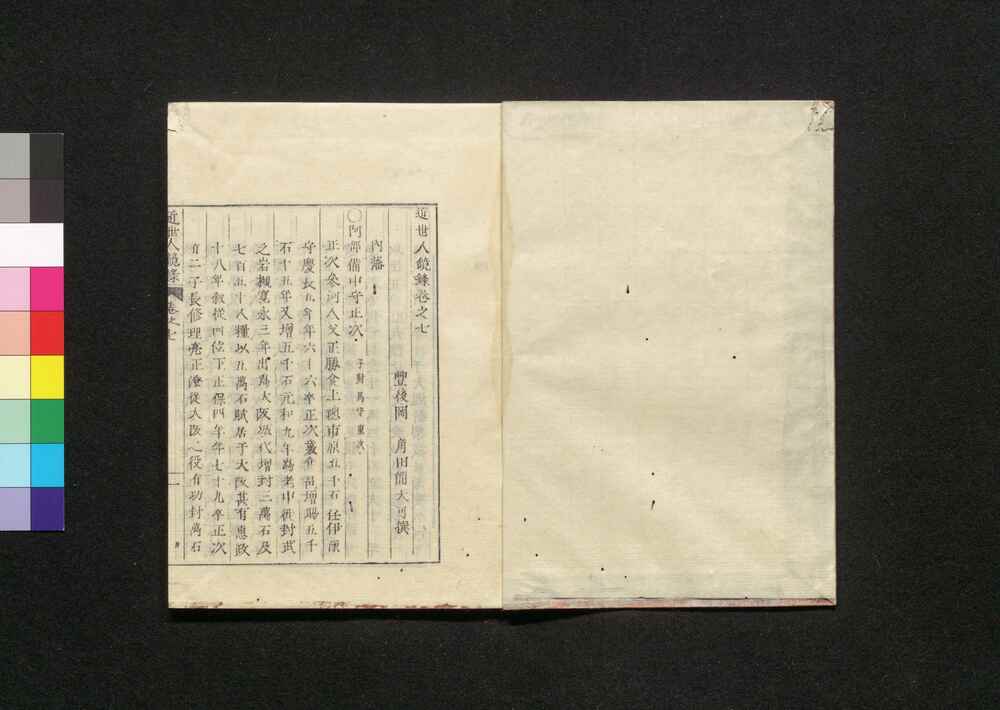 近世人鏡錄卷之七
豐後岡 角田簡大可撰
內藩
〇阿部備中守正次 子對馬守重次
正次參河人父正勝食上總市原五千石任伊豫
守慶長五年年六十六卒正次襲食邑增賜五千
石十五年又增五千石元和九年爲老中徙封武
之岩槻寬永三年出爲大阪城代增封三萬石及
七百五十人糧以五萬石賦居于大阪甚有惠政
十八年叙從四位下正保四年年七十九卒正次
有二子長修理亮正澄從大阪之役有功封萬石
近世人鏡錄 卷之七 一